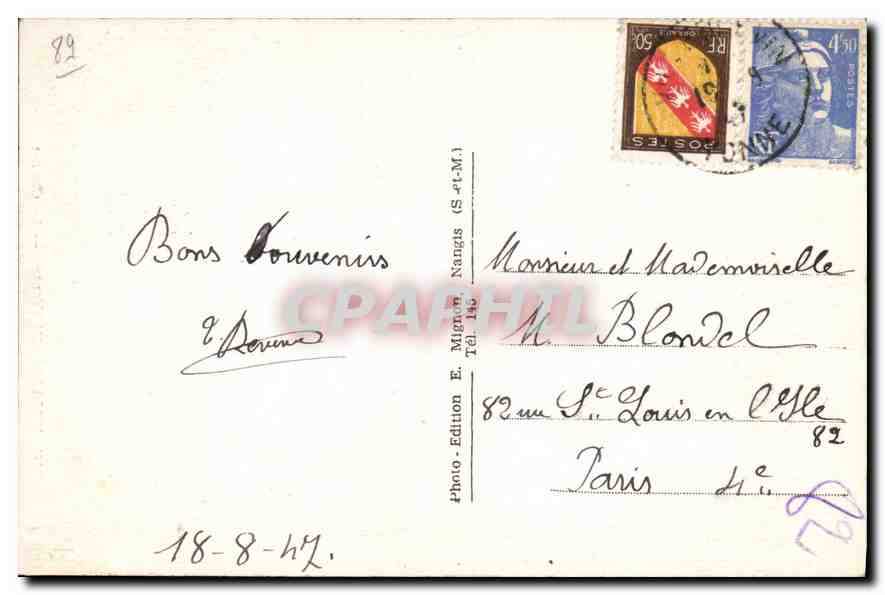 82
Bons Souvenirs
18-8-47.
Photo - Edition E. Mignon, Nangis (S-et-M.)
Tél. 145
CPAPHIL
RF
50c
POSTES
4f50
POSTES
YONNE
Monsieur et Mademoiselle
M. Blondel
82 rue St Louis en l'Ile
82
Paris 4e
82